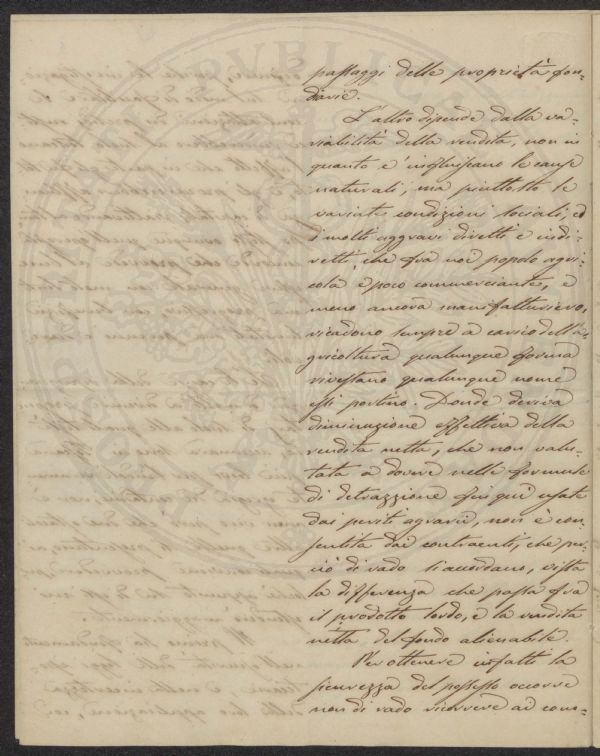 passaggi delle proprietà fon-
diarie.
L'altro dipende dalla va-
riabilità della rendita, non in
quanto c'influiscano le cause
naturali, ma piuttosto le
variate condizioni sociali, ed
i molti aggravi diretti e indi-
retti, che fra noi popolo agri-
cola, e poco commerciante, e
meno ancora manifatturiero,
ricadono sempre a carico dell'a-
gricoltura qualunque forma
rivestano qualunque nome
essi portino. Donde deriva
diminuzione effettiva della
rendita netta, che non valu-
tata a dovere nelle formule
di detrazzione fin qui usate
dai periti agrarii, non è con-
sentita dai contraenti, che per-
ciò di rado si accordano, vista
la differenza che passa fra
il prodotto lordo, e la rendita
netta del fondo alienabile.
Per ottenere infatti la
sicurezza del possesso occorre
non di rado ricorrere ad com-